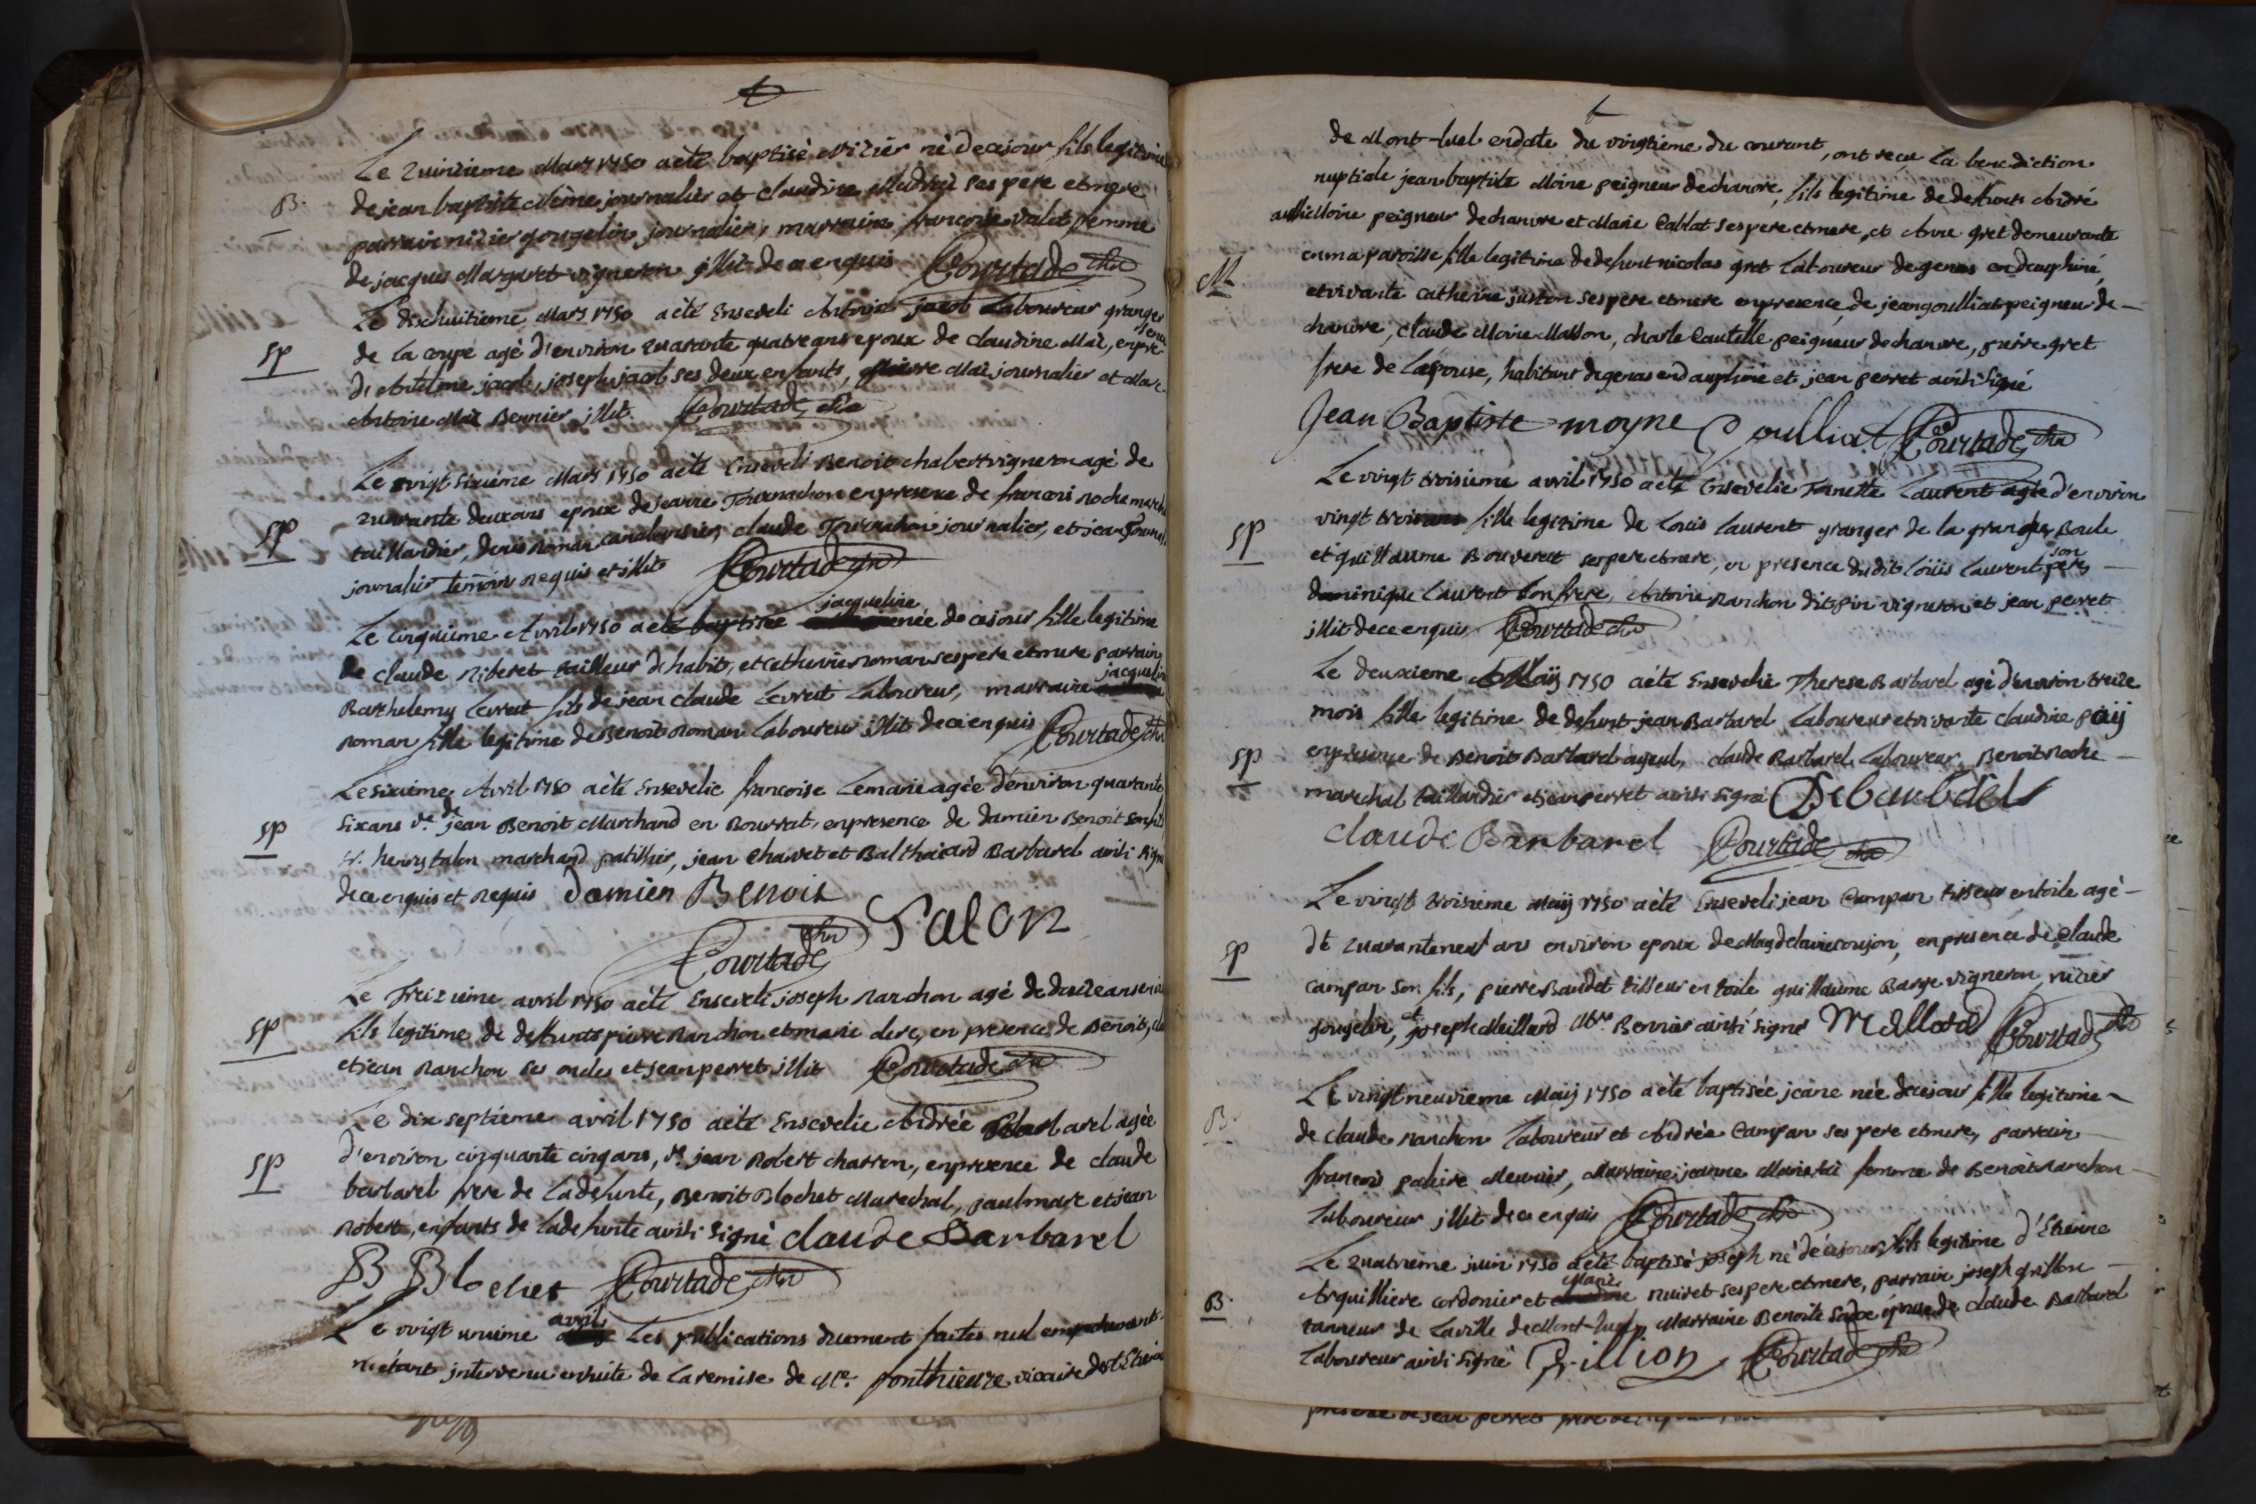 Le Quinzieme Mars 1750 a été baptisé Nizier né de ce jour fils legitime
B.
de jean baptiste journalier et Claudine ses pere et mere
parrain nizier gougelin journalier, marraine francoise Valet femme
de jacques Margaret vigneron illit. de ce enquis Courtade
Le dixhuitieme Mars 1750 a été Enseveli Antoine jacob Laboureur granger
Sp
de la coupe agé d'environ quarante quatre ans epoux de claudine Mai, en presence
d'Antelme jacob, joseph jacob ses deux enfants, pierre Mai journalier et
Antoine Mai illit. Courtade
Le vingt sixiéme Mars 1750 a été Enseveli Benoit chabert vigneron agé de
Sp
quarante deux ans epoux de jeanne Tournachon en presence de francois roche
taillandier, denis roman, claude Tournachon journalier, et jean
journalier temoins requis et illit Courtade
Le cinquieme Avril 1750 a été baptisée jacqueline née de ce jour fille legitime
de claude Riberet tailleur d'habit, et catherine roman ses pere et mere parrain
Barthelemy Levrat fils de jean claude Levrat Laboureur, marraine jacqueline
roman fille legitime de Benoit roman Laboureur illit. de ce enquis Courtade
Le sixieme Avril 1750 a été Ensevelie francoise Lemarié agée d'environ quarante
Sp
six ans ve. de jean Benoit Marchand en Bourrat, en presence de damien Benoit son fils
Sr. henry talon marchand patissier, jean Charvet et Balthazard Barbarel
de ce enquis et requis Damien Benoit
Talon
Courtade
Le Treizieme avril 1750 a été Enseveli joseph ranchon agé de douze ans
Sp
fils legitime de deffunts pierre ranchon et marie dere, en presence de Benoit,
et jean ranchon ses oncles et jean perret illit Courtade
Le dix septieme avril 1750 a été Ensevelie Andrée Barbarel agée
Sp
d'environ cinquante cinq ans, ve. jean Robert charron, en presence de claude
barbarel frere de la defunte, Benoit Blochet Marechal, et jean
Robert, enfants de la defunte signé claude Barbarel
B Blochet Courtade
Le vingt unieme avril Les publications duement faites nul empechement
n'etant intervenu ensuite de la remise de Mre. ponthieure vicaire de
de Mont-luel en date du vingtieme du courant, ont reçu La benediction
nuptiale jean baptiste Moine peigneur de chanvre, fils legitime de deffunts André
Moine peigneur de chanvre et Marie Cablat ses pere et mere, et Anne gret demeurante
M
en ma paroisse fille legitime de defunt nicolas gret Laboureur de genas en dauphiné,
et vivante catherine juston ses pere et mere en presence de jean goulliat peigneur de
chanvre, Claude Moine Masson, charle Cautelle peigneur de chanvre, pierre gret
frere de L'epouse, habitant de genas en dauphiné et jean perret signé
Jean Baptiste moyne Goulliat Courtade
Le vingt troisieme avril 1750 a été Ensevelie Laurent agée d'environ
Sp
vingt trois ans fille legitime de Louis Laurent granger de la grange Boule
et guillaume Bouveret ses pere et mere, en presence dudit Louis Laurent son pere,
dominique Laurent son frere, Antoine ranchon dit pin vigneron et jean perret
illit de ce enquis Courtade
Le deuxieme Maij 1750 a été Ensevelie Therese Barbarel agé d'environ treize
mois fille legitime de defunt jean Barbarel Laboureur et vivante claudine
Sp
en presence de Benoit Barbarel ayeul, claude Barbarel Laboureur, Benoit Roche
marechal taillandier et jean perret signé
claude Barbarel Courtade
Le vingt troisieme Maij 1750 a été Enseveli jean Campan tisseur en toile agé
Sp
de quarante neuf ans environ epoux de Magdelaine coujon, en presence de claude
campan son fils, pierre Baudet tisseur en toile guillaume Barge vigneron, nizier
gougelin, et joseph Meillard signé Courtade
Le vingt neuvieme Maij 1750 a été baptisée jeane née de ce jour fille legitime
B.
de claude ranchon Laboureur et Andrée Campan ses pere et mere, parrain
francois Meunier, Marraine jeanne femme de Benoit ranchon
Laboureur illit. de ce enquis Courtade
Le quatrieme juin 1750 a été baptisé joseph né de ce jour fils legitime d'Etienne
B.
Arquilliere cordonier et Marie ses pere et mere, parrain joseph grillion
tanneur de la ville de Mont-luel, Marraine Benoite epouse de claude Barbarel
Laboureur signé Grillion Courtade